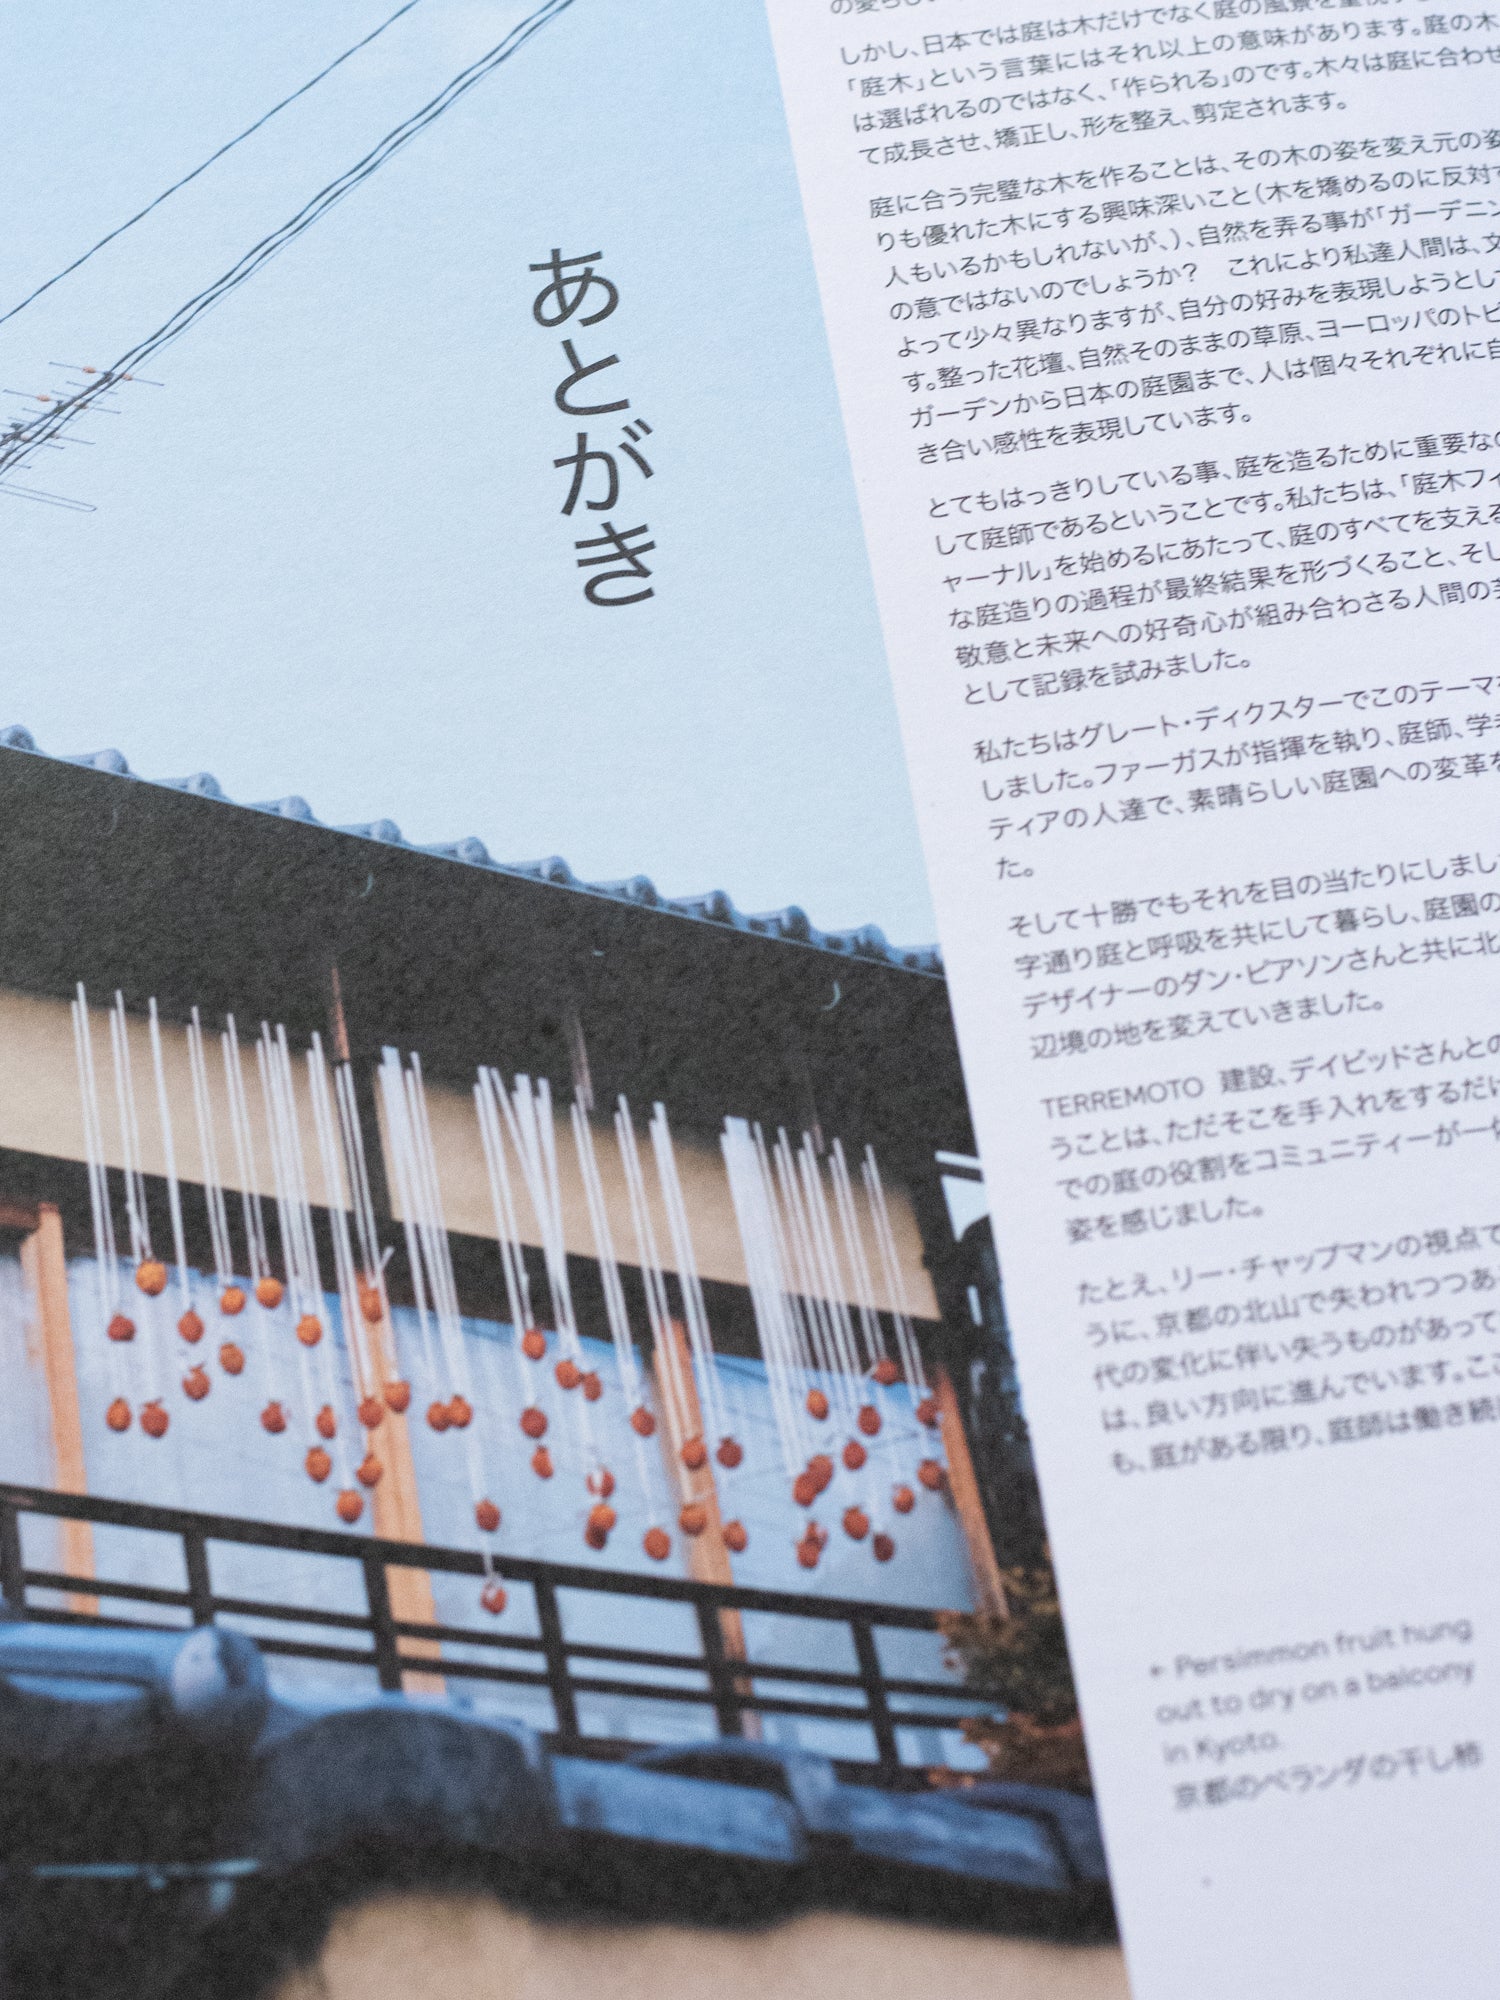 あとがき
しかし、日本では庭は木だけでなく庭の風景を重視
「庭木」という言葉にはそれ以上の意味があります。庭の木
は選ばれるのではなく、「作られる」のです。木々は庭に合わせ
て成長させ、矯正し、形を整え、剪定されます。
庭に合う完璧な木を作ることは、その木の姿を変え元の姿
りも優れた木にする興味深いこと(木を矯めるのに反対す
人もいるかもしれないが、)、自然を弄る事が「ガーデニン
の意ではないのでしょうか？　これにより私達人間は、文
よって少々異なりますが、自分の好みを表現しようとして
す。整った花壇、自然そのままの草原、ヨーロッパのトピ
ガーデンから日本の庭園まで、人は個々それぞれに自
き合い感性を表現しています。
とてもはっきりしている事、庭を造るために重要なの
して庭師であるということです。私たちは、「庭木フィ
ャーナル」を始めるにあたって、庭のすべてを支える
な庭造りの過程が最終結果を形づくること、そし
敬意と未来への好奇心が組み合わさる人間の
として記録を試みました。
私たちはグレート・ディクスターでこのテーマ
しました。ファーガスが指揮を執り、庭師、学
ティアの人達で、素晴らしい庭園への変革を
た。
そして十勝でもそれを目の当たりにしまし
字通り庭と呼吸を共にして暮らし、庭園の
デザイナーのダン・ピアソンさんと共に北
辺境の地を変えていきました。
TERREMOTO 建設、デイビッドさんとの
うことは、ただそこを手入れをするだけ
での庭の役割をコミュニティーが一
姿を感じました。
たとえ、リー・チャップマンの視点で
うに、京都の北山で失われつつあ
代の変化に伴い失うものがあって
は、良い方向に進んでいます。ここ
も、庭がある限り、庭師は働き続
← Persimmon fruit hung
out to dry on a balcony
in Kyoto.
京都のベランダの干し柿